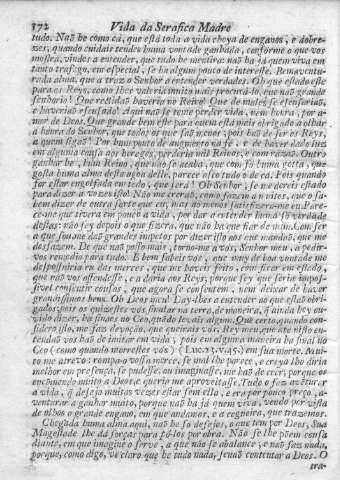 172 Vida da Serafica Madre
tudo. Naõ he como cá, que está toda a vida cheya de enganos, e dobre-
zes, quando cuidais tendes huma vontade ganhada, conforme o que vos
mostra, vindes a entender, que tudo he mentira: naõ ha já quem viva em
tanto trafego, em especial, se ha algum pouco de interesse. Bemaventu-
rada alma, que a traz o Senhor a entender verdades. Oh que estado este
para os Reys, como lhes valeria muito mais procurá-lo, que naõ grande
senhorio! Que rectidaõ haveria no Reino! Que de males se escusariaõ,
e haveriaõ escusado! Aqui naõ se teme perder vida, nem honra, por a-
mor de Deos. Que grande bem este para quem está mais obrigado a olhar
a honra do Senhor, que todos os que saõ menos, pois haõ de ser os Reys,
a quem sigaõ! Por hum ponto de augmento na fé, e de haver dado luz
em alguma cousa aos hereges, perderia mil Reinos; e com razaõ. Outro
ganhar he, hum Reino, que naõ se acaba, que com só huma gotta, que
gosta huma alma desta agoa delle, parece asco tudo o de cá. Pois quando
for estar engolfada em tudo, que será! Oh Senhor, se me dereis estado
para dizer a vozes isto! Naõ me creraõ, como fazem a muitos, que o sa-
bem dizer de outra sorte que eu, mas ao menos satisfizera-me eu. Pare-
ce-me que tivera em pouco a vida, por dar a entender huma só verdade
destas: naõ sey depois o que fizera, que naõ ha que fiar de mim. Com ser
a que sou, me daõ grandes impetos por dizer isto aos que mandaõ, que me
desfazem. De que naõ posso mais, torno-me a vós, Senhor meu, a pedir-
vos remedio para tudo. E bem sabeis vós, que muy de boa vontade me
despossuiria eu das merces, que me haveis feito, com ficar em estado,
que naõ vos offendesse, e a daria aos Reys; porque sey que seria impos-
sivel consentir cousas, que agora se consentem, nem deixar de haver
grandissimos bens. Oh Deos meu! Day-lhes a entender ao que estaõ obri-
gados; pois os quizestes vós sinalar na terra, de maneira, que ainda hey ou-
vido dizer, ha sinaes no Ceo, quando levais algum. Que certo, quando con-
sidero isto, me faz devoçaõ, que queirais vós, Rey meu, que até nisto en-
tendaõ vos haõ de imitar em vida, pois em alguma maneira ha sinal no
Ceo (como quando morrestes vós) em sua morte. Mui-
to me atrevo: rompa-o vossa mercé, se mal lhe parece, e creya lho diria
melhor em presença, se pudesse, ou imaginasse, me haõ de crer, porque os
encomendo muito a Deos, e queria me aproveitasse. Tudo o faz aventurar
a vida, que deseja muitas vezes estar sem ella, e era por pouco preço, a-
venturar a ganhar muito, porque naõ ha já quem viva, vendo por vista
de olhos o grande engano, em que andamos, e a cegueira, que trazemos.
Chegada huma alma aqui, naõ he só desejos, o que tem por Deos, Sua
Magestade lhe dá forças para pô-los por obra. Naõ se lhe põem cousa
diante, em que imagine o serve, a que naõ se abalance, e naõ faz nada,
porque, como digo, vé claro que he tudo nada, senaõ contentar a Deos. O
tra-